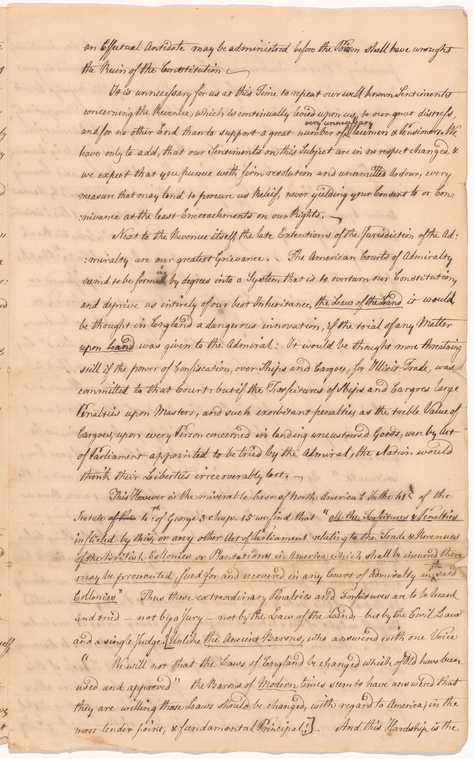 an Effectual Antidote may be administred before the Poison shall have wrought
the Ruin of the Constitution
It is unnecessary for us at this Time to repeat our well known Sentiments
concerning the Revenue, which is continually levied upon us, to our great distress,
and for no other End than to support a great number of very unnecessary Placemen & Pensioners. We
have only to add, that our Sentiments on this Subject are in no respect changed, &
we expect that you pursue with firm resolution and unremitted ardour, every
measure that may tend to procure us Relief, never yielding your Consent to or Con-
nivance at the least Encroachments on our Rights.
Next to the Revenue itself, the late Extentions of the Jurisdiction of the Ad-
:miralty are our greatest Grievance. The American Courts of Admiralty
seem to be forming by degrees into a System that is to overturn our Constitution,
and deprive us intirely of our best Inheritance, the Laws of the Land. it would
be thought in England a dangerous innovation, if the trial of any Matter
upon Land was given to the Admiral: It would be thought more threatning
still if the power of Confiscation, over Ships and Cargoes, for Illicit Trade, was
committed to that Court: but if the Forfeitures of Ships and Cargoes large
Penalties upon Masters, and such exorbitant penalties as the treble Value of
Cargoes, upon every Person concerned in landing uncustomed Goods, were by Act
of Parliament appointed to be tried by the Admiral, the Nation would
think their Liberties irrecoverably lost.
This However is the miserable Case of North America! In the 41st § of the
Statute of the 4th of George 3 Chap. 15 we find that "all the Forfeitures & Penalties
inflicted by this, or any other Act of Parliament relating to the Trade & Revenues
of the British Collonies or Plantations in America, which shall be incurred there
may be prosecuted, sued for and recovered in any Court of Admiralty in the said
Collonies" Thus these extraordinary Penalties and Forfeitures are to be heard
and tried - not by a Jury - not by the Law of the Land - but by the Civil Law
and a single Judge. [Unlike the Ancient Barons, who answered with one Voice
"We will not that the Laws of England be changed which of Old have been
used and approved" the Barons of Modern times seem to have answered that
they are willing those Laws should be changed, with regard to America, in the
most tender point, & fundamental Principal!]. And this Hardship, is the